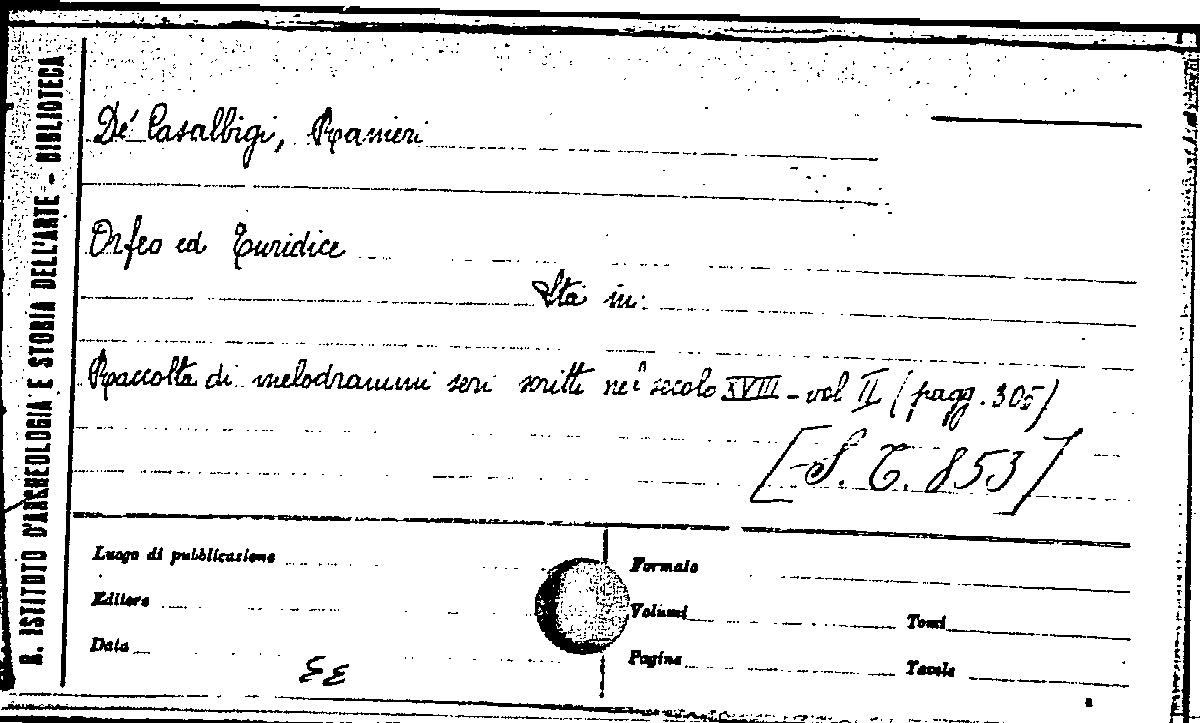 R. ISTITUTO D'ARCHEOLOGIA E STORIA DELL'ARTE - BIBLIOTECA
De' Casalbigi, Ranieri
Orfeo ed Euridice
Sta in:
Raccolta di melodrammi seri scritti nel secolo XVIII - vol II (pagg. 305)
[S. T. 853]
Luogo di pubblicazione
Editore
Data
Formato
Volumi Tomi
Pagine Tavole